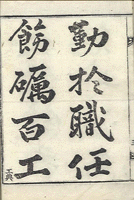 勤於職任
飭礪百工